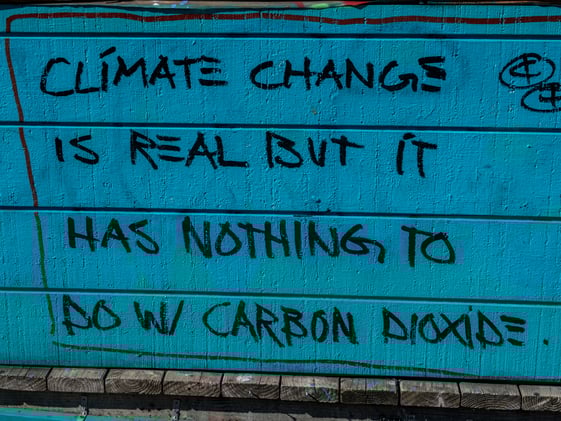 CLIMATE CHANGE
IS REAL BUT IT
HAS NOTHING TO
DO W/ CARBON DIOXIDE.